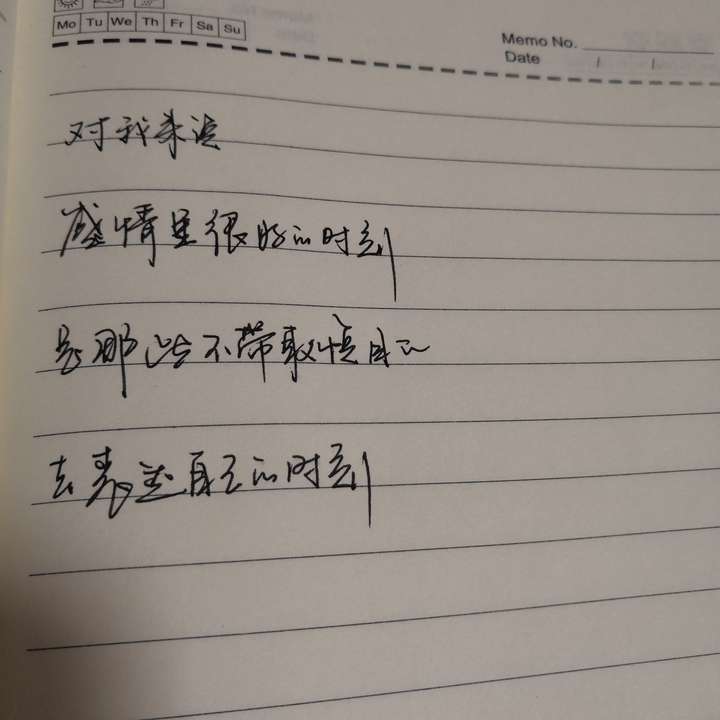 Mo Tu We Th Fr Sa Su
Memo No.
Date / /
对我来说
感情里很好的时刻
是那些不带取悦目的
去表达自己的时刻